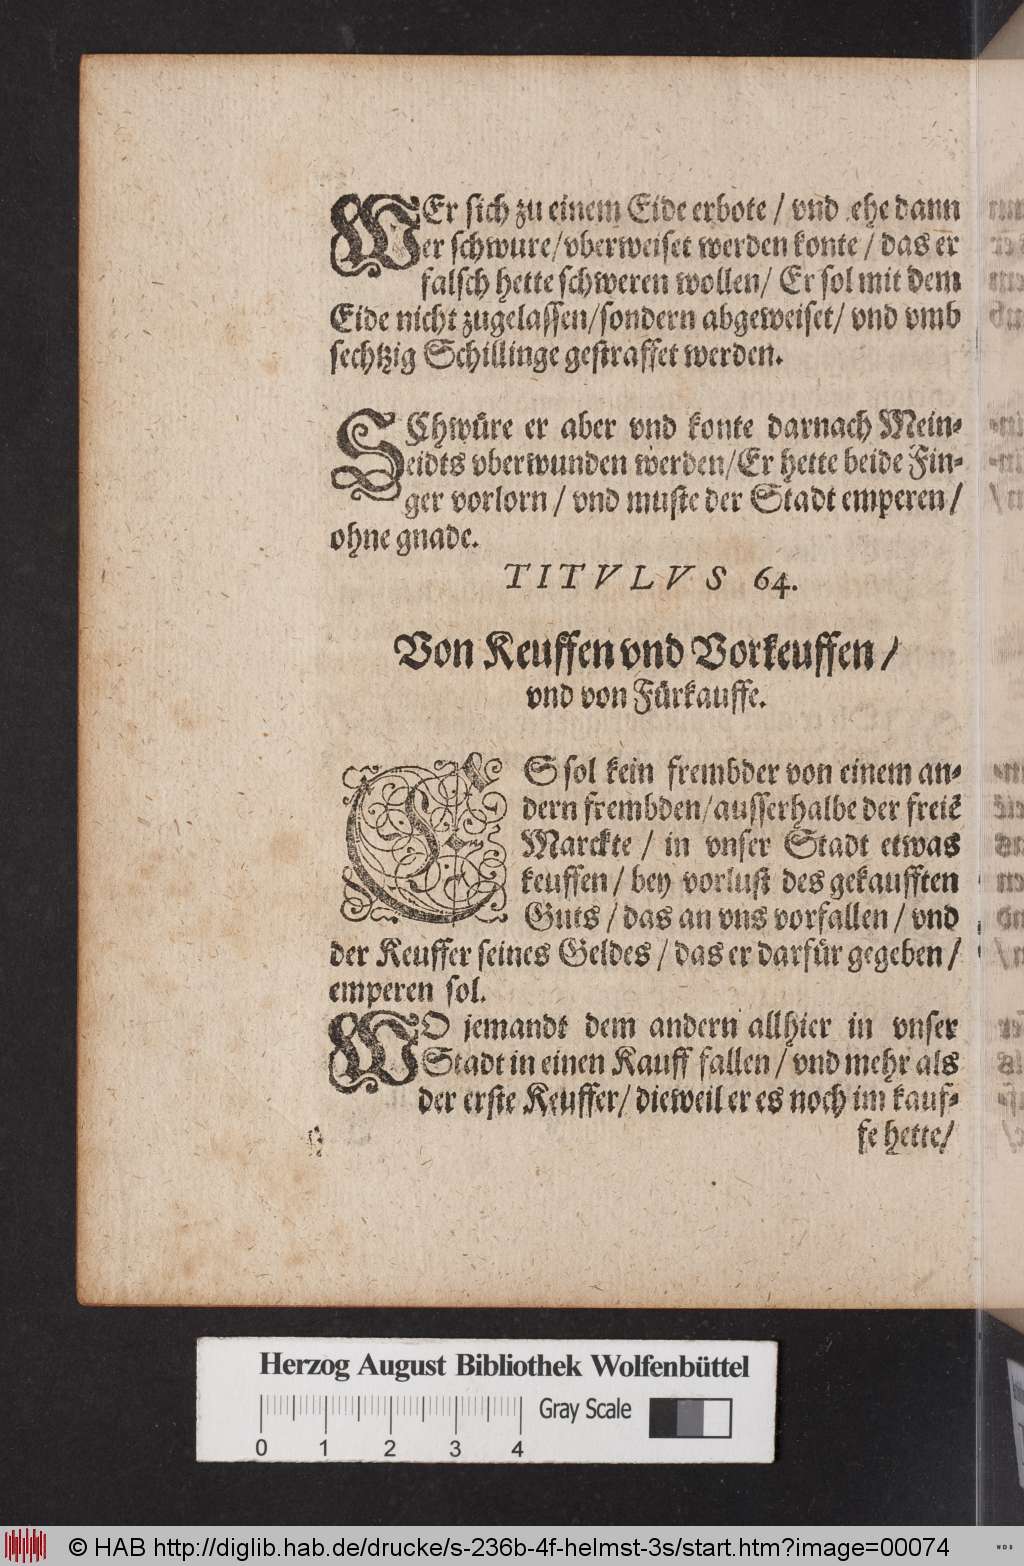 WEr sich zu einem Eide erbote / vnd ehe dann
er schwure/vberweiset werden konte / das er
falsch hette schweren wollen/ Er sol mit dem
Eide nicht zugelassen/sondern abgeweiset/ vnd vmb
sechtzig Schillinge gestraffet werden.
SChwüre er aber vnd konte darnach Mein-
eidts vberwunden werden/Er hette beide Fin-
ger vorlorn / vnd muste der Stadt emperen/
ohne gnade.
TITVLVS 64.
Von Keuffen vnd Vorkeuffen /
vnd von Fürkauffe.
ES sol kein frembder von einem an-
dern frembden/ausserhalbe der freiē
Marckte / in vnser Stadt etwas
keuffen / bey vorlust des gekaufften
Guts / das an vns vorfallen / vnd
der Keuffer seines Geldes / das er darfür gegeben /
emperen sol.
WO jemandt dem andern allhier in vnser
Stadt in einen Kauff fallen / vnd mehr als
der erste Keuffer/ dieweil er es noch im kauf-
fe hette/
Herzog August Bibliothek Wolfenbüttel
Gray Scale
0 1 2 3 4
© HAB http://diglib.hab.de/drucke/s-236b-4f-helmst-3s/start.htm?image=00074